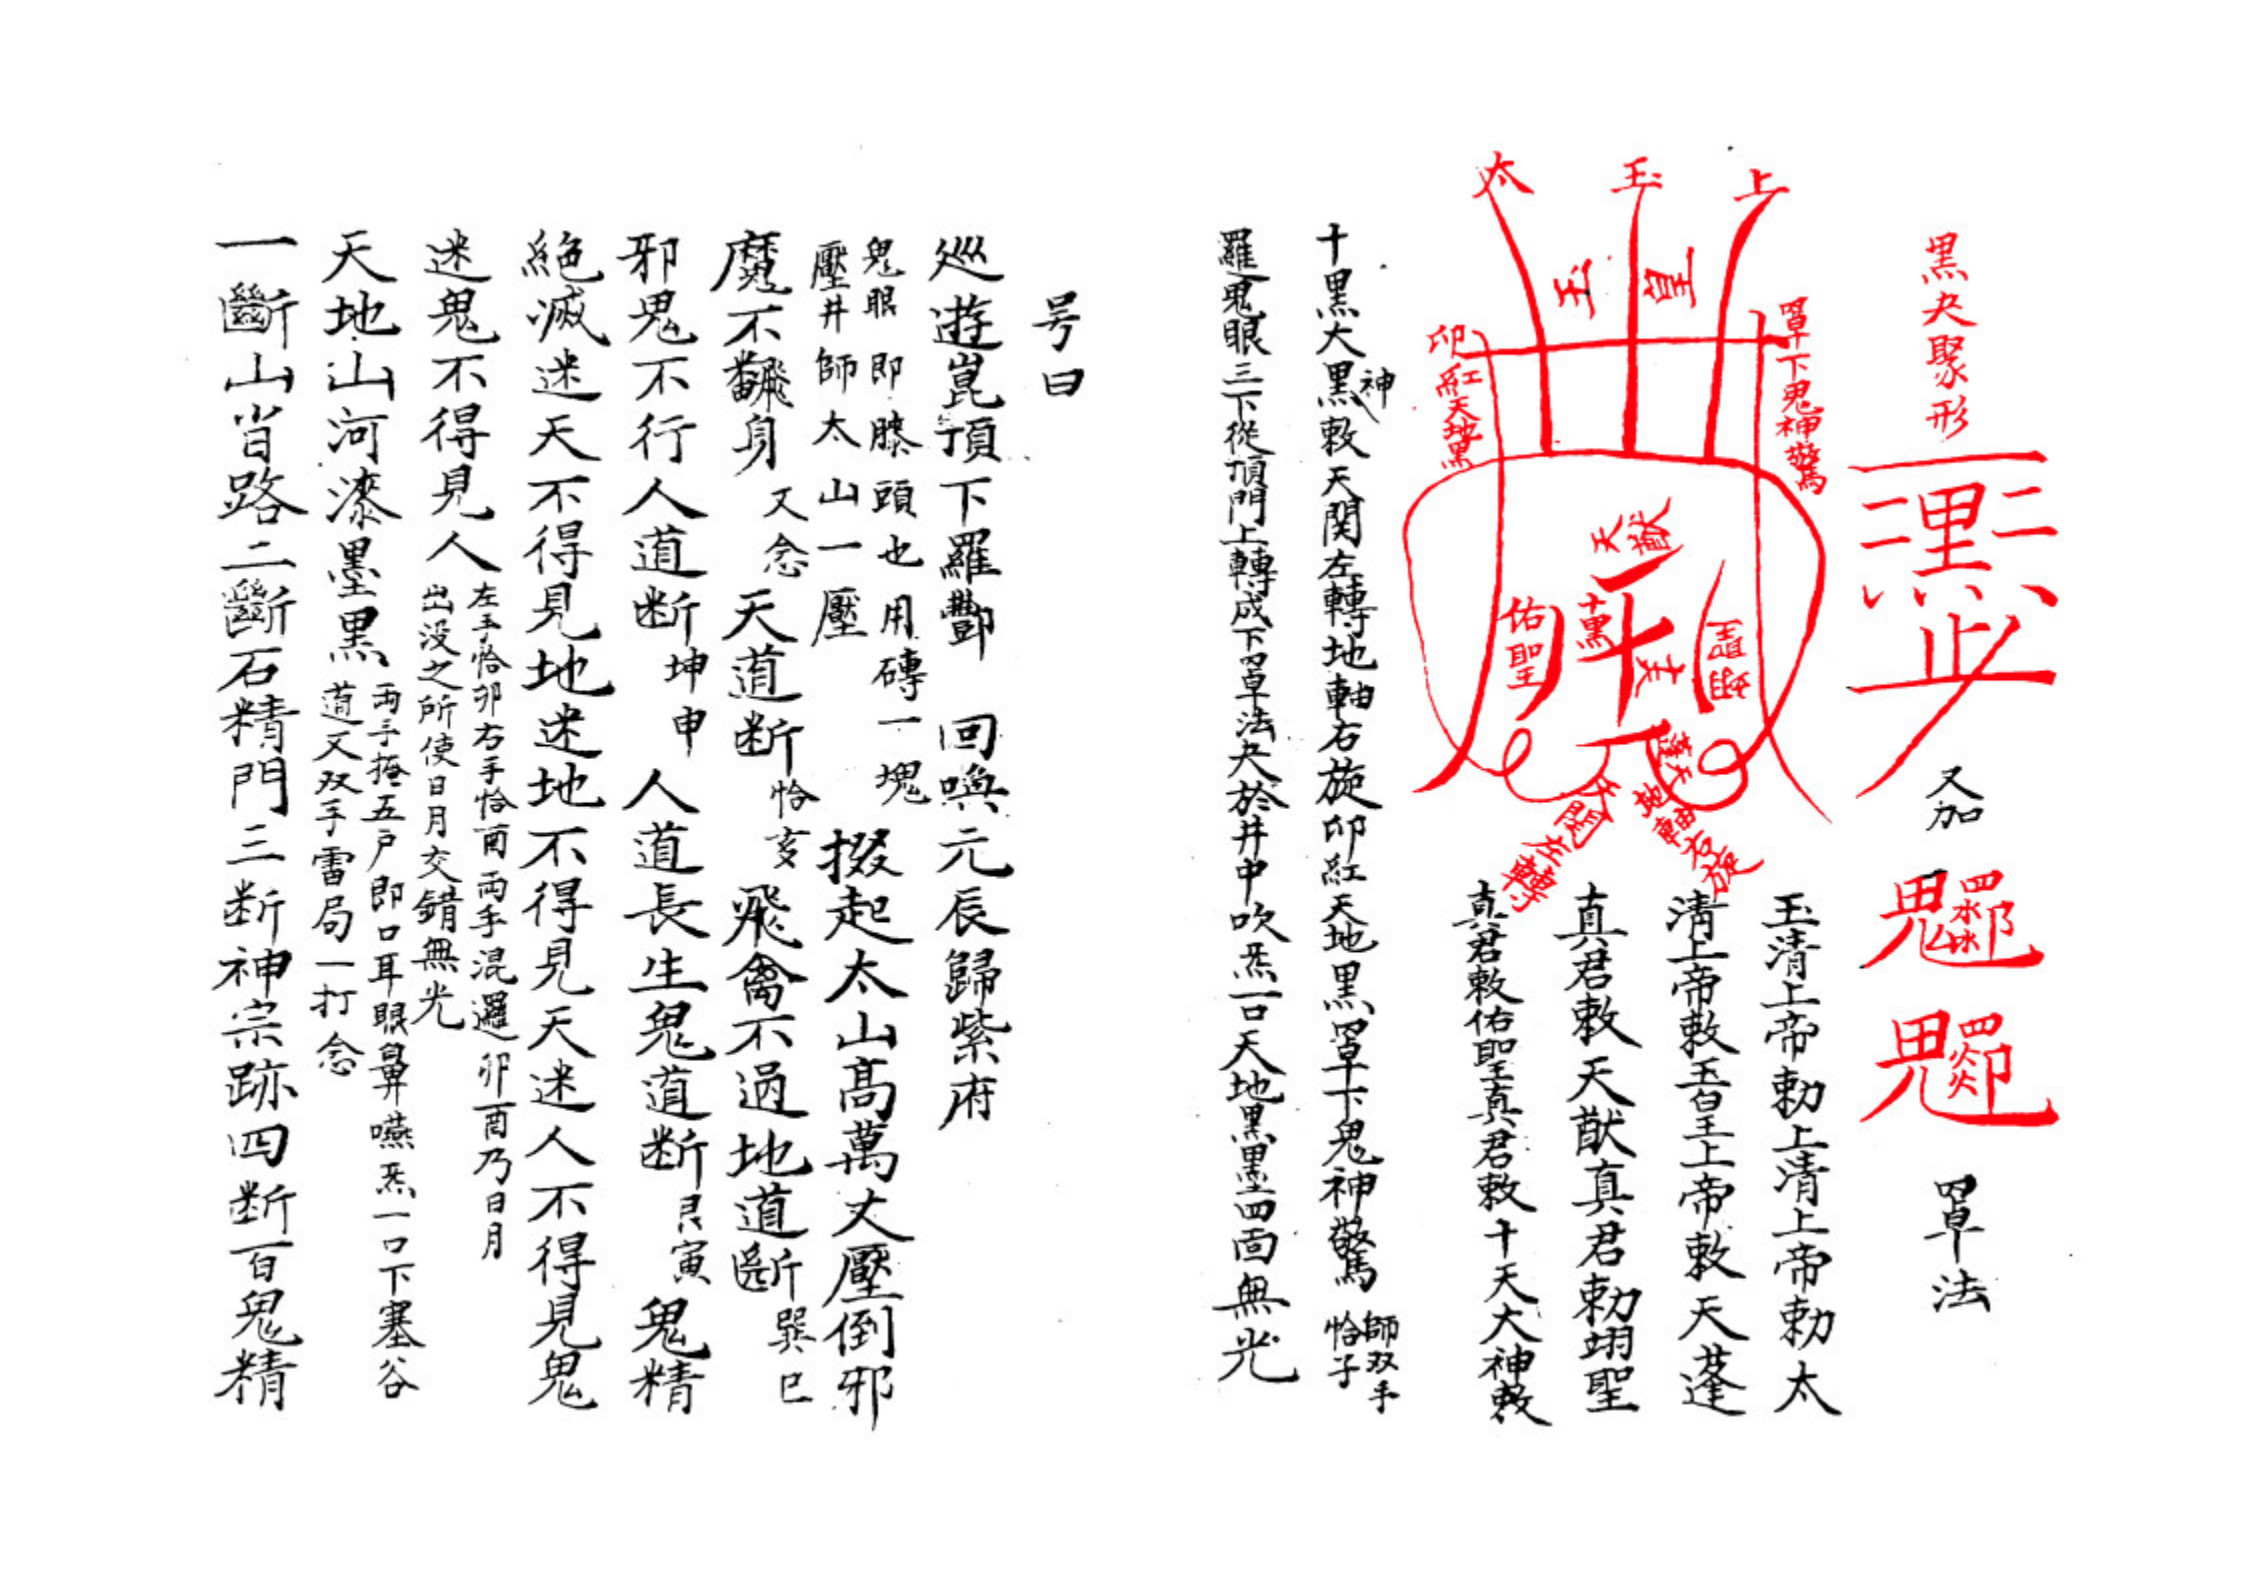 黒夬聚形
又加
罩法
太 玉 上
玉皇
印紅天地黒
罩下鬼神驚
天猷
佑聖
十黒
翊聖
天蓬
天関左轉
地軸右旋
玉清上帝勅上清上帝勅太
清上帝敕玉皇上帝敕天蓬
真君敕天猷真君勅翊聖
真君敕佑聖真君敕十天大神敕
十黒大黒神敕天関左轉地軸右旋印紅天地黒罩下鬼神驚 師双手恰子
羅鬼眼三下從頂門上轉成下罩法夬於井中吹炁一口天地黒墨四面無光
号曰
巡遊崑頂下羅酆 回喚元辰歸紫府
鬼眼即膝頭也用磚一塊
壓井師太山一壓
掇起太山高萬丈壓倒邪
魔不飜身 又念 天道断 恰亥 飛禽不過地道断 巽巳
邪鬼不行人道断 坤申 人道長生鬼道断 艮寅 鬼精
絶滅迷天不得見地迷地不得見天迷人不得見鬼
迷鬼不得見人
左手恰卯右手恰酉両手混邏卯酉乃日月
出没之所使日月交錯無光
天地山河漆墨黒
両手掩五户即口耳眼鼻嚥炁一口下塞谷
道又双手雷局一打念
一斷山省路二斷石精門三断神宗跡四断百鬼精